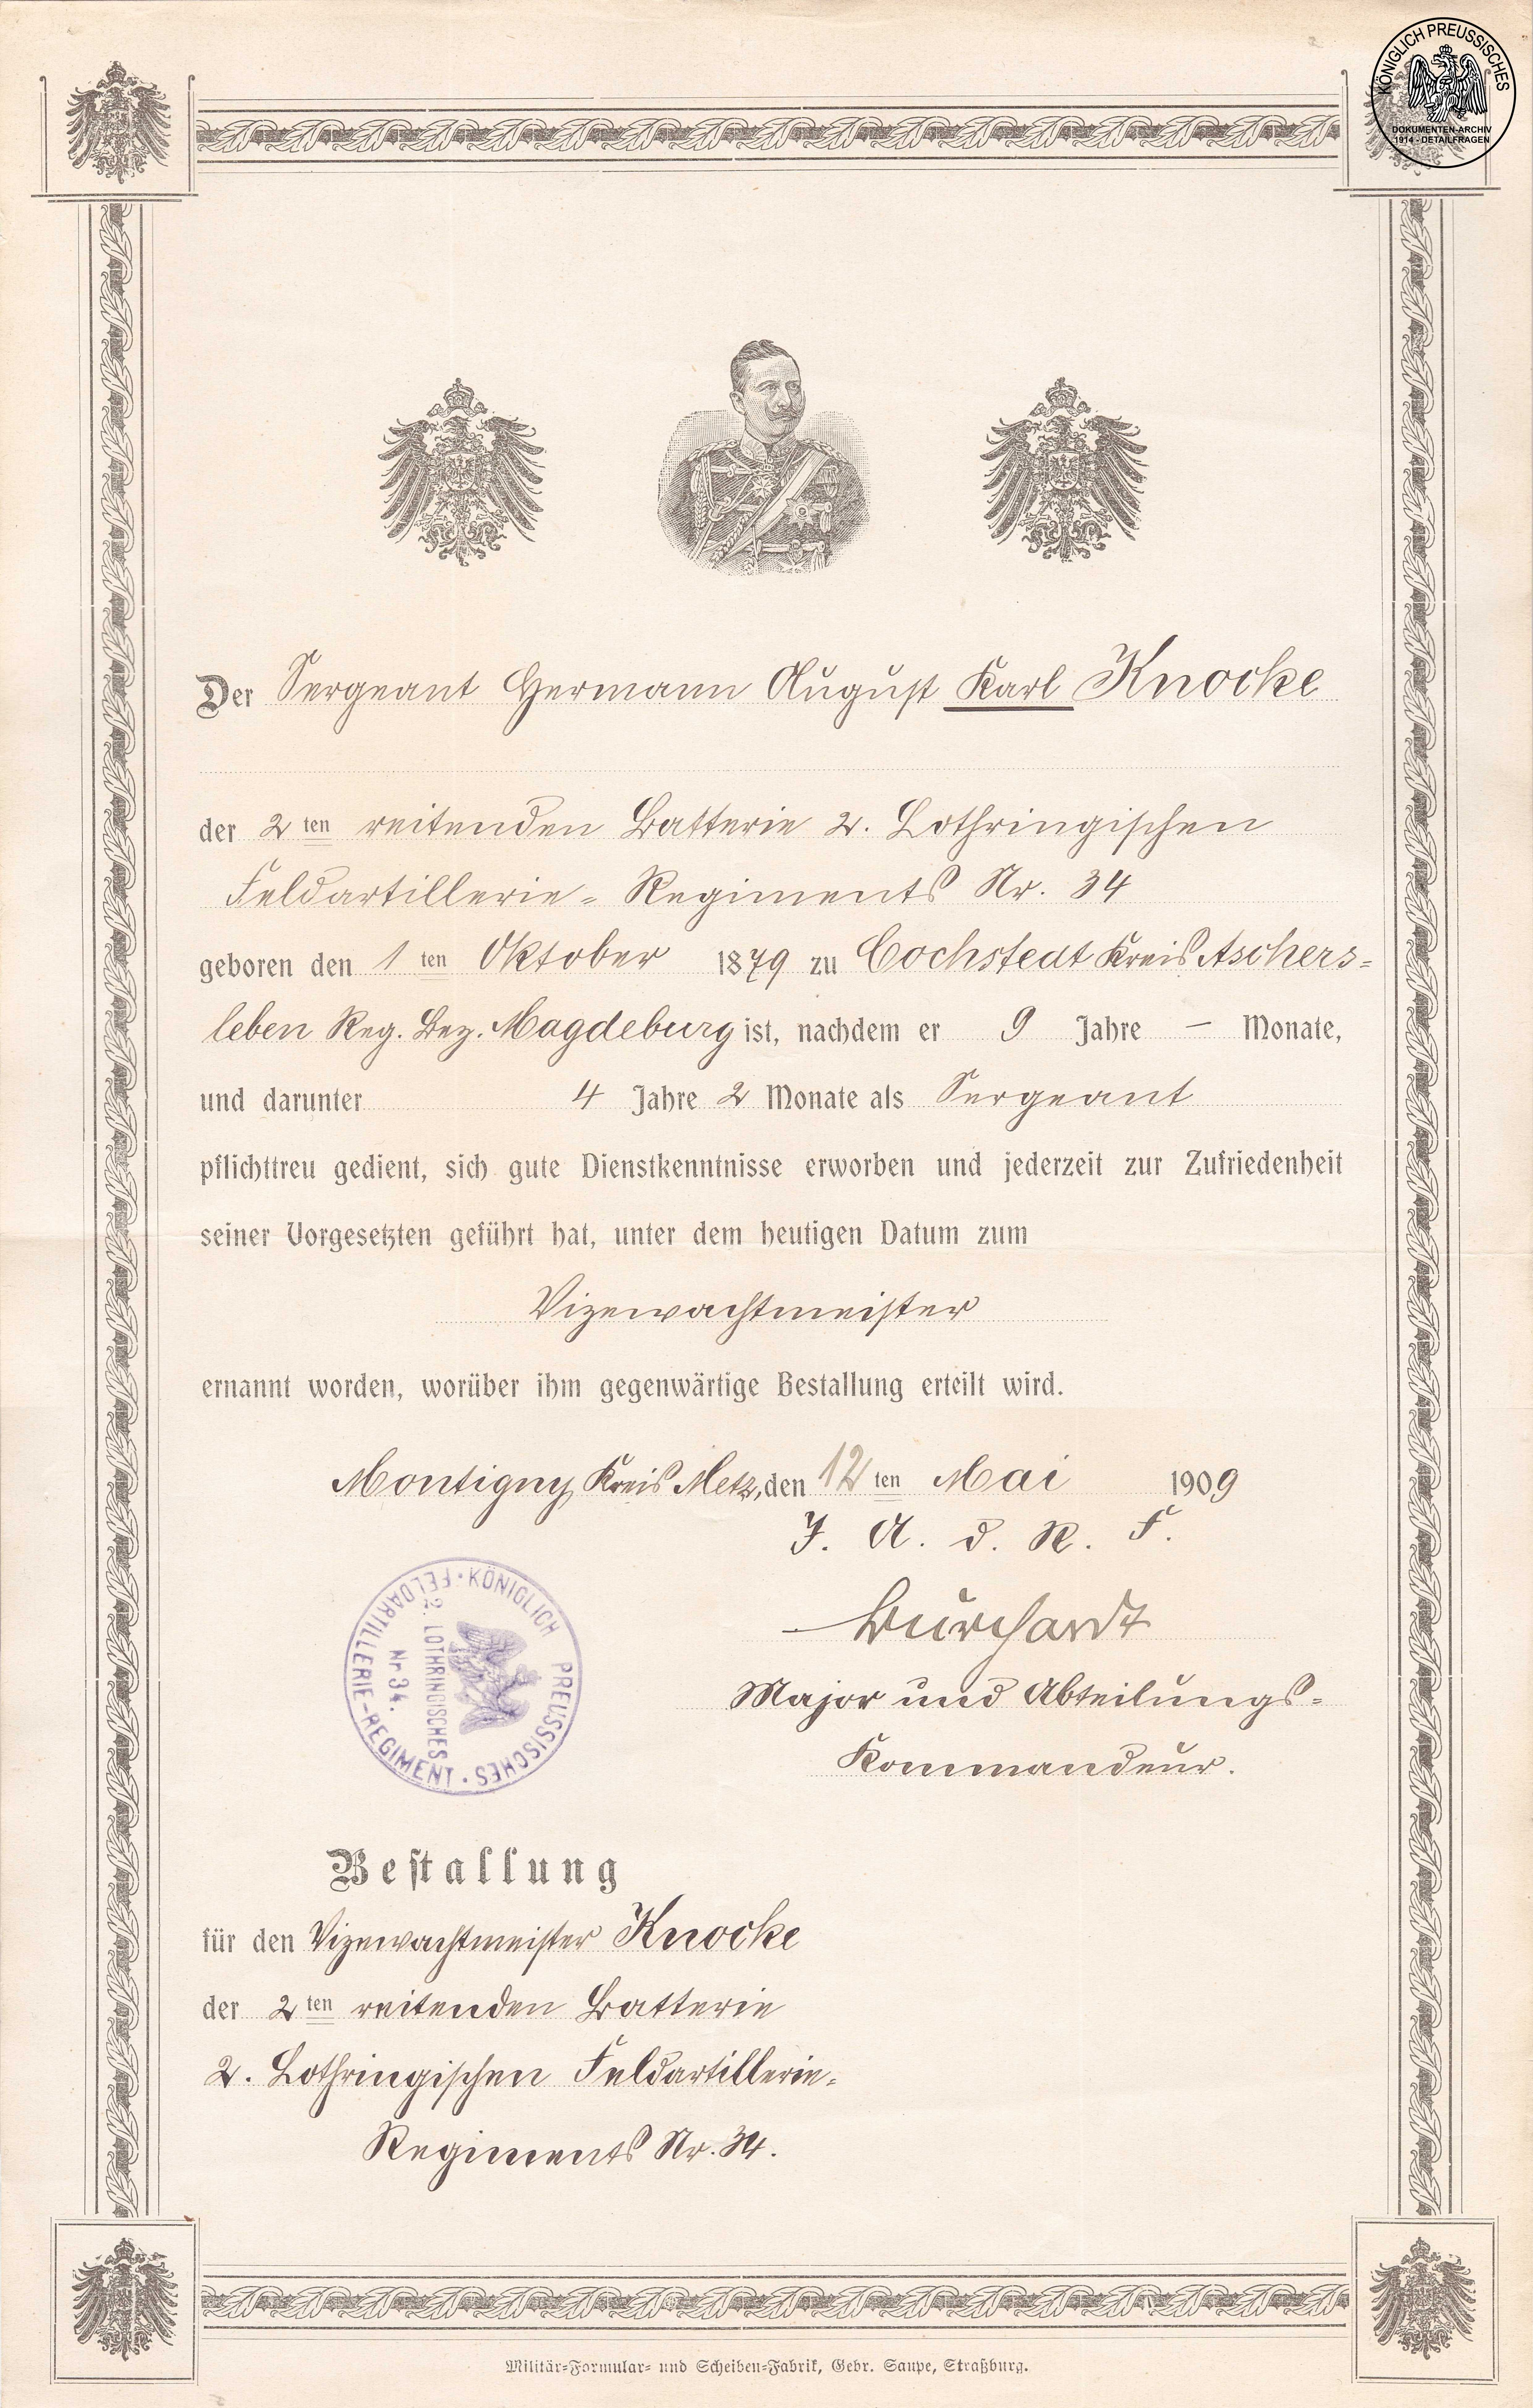 KÖNIGLICH PREUSSISCHES
DOKUMENTEN-ARCHIV
1914 - DETAILFRAGEN
Der Sergeant Hermann August Karl Knocke
der 2 ten reitenden Batterie 2. Lothringischen
Feldartillerie- Regiments Nr. 34
geboren den 1 ten Oktober 1879 zu Cochstedt Kreis Aschers-
leben Reg. Bez. Magdeburg ist, nachdem er 9 Jahre – Monate,
und darunter 4 Jahre 2 Monate als Sergeant
pflichttreu gedient, sich gute Dienstkenntnisse erworben und jederzeit zur Zufriedenheit
seiner Vorgesetzten geführt hat, unter dem heutigen Datum zum
Vizewachtmeister
ernannt worden, worüber ihm gegenwärtige Bestallung erteilt wird.
Montigny, Kreis Metz, den 12 ten Mai 1909
J. A. d. R. F.
Burchardt
Major und Abteilungs-
Kommandeur.
KÖNIGLICH PREUSSISCHES
2. LOTHRINGISCHES
Nr 34.
FELDARTILLERIE-REGIMENT
Bestallung
für den Vizewachtmeister Knocke
der 2 ten reitenden Batterie
2. Lothringischen Feldartillerie-
Regiments Nr. 34.
Militär-Formular- und Scheiben-Fabrik, Gebr. Saupe, Straßburg.